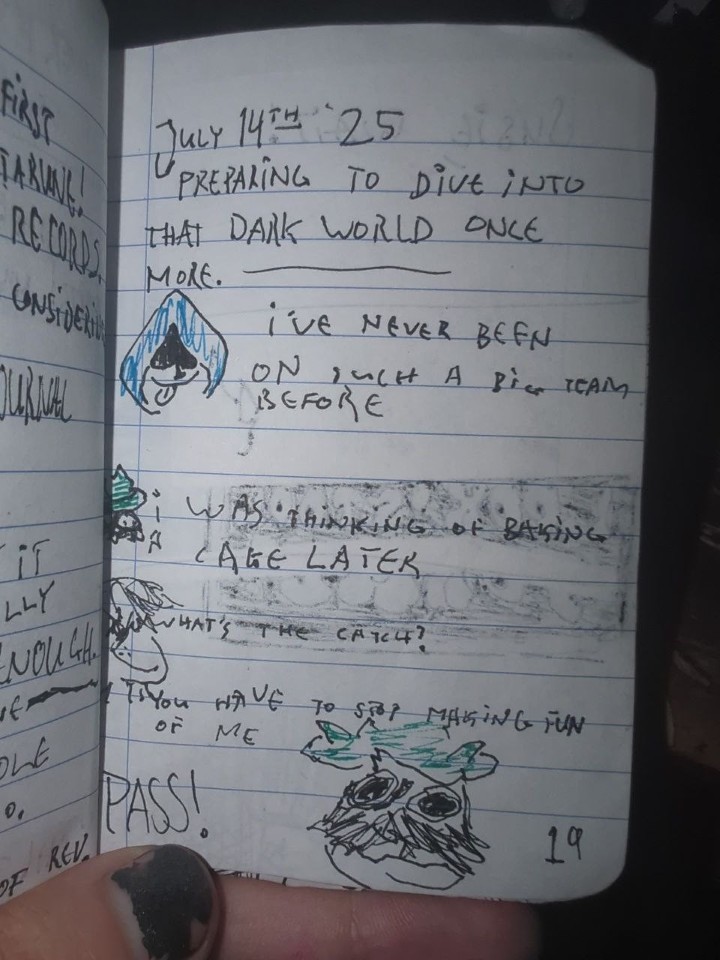 FIRST
RECORDS.
JOURNAL
IT
ENOUGH.
OF REV.
JULY 14TH '25
PREPARING TO DIVE INTO
THAT DARK WORLD ONCE
MORE.
I'VE NEVER BEEN
ON SUCH A BIG TEAM
BEFORE
I WAS THINKING OF BAKING
A CAKE LATER
WHAT'S THE CATCH?
YOU HAVE TO STOP MAKING FUN
OF ME
PASS!
19